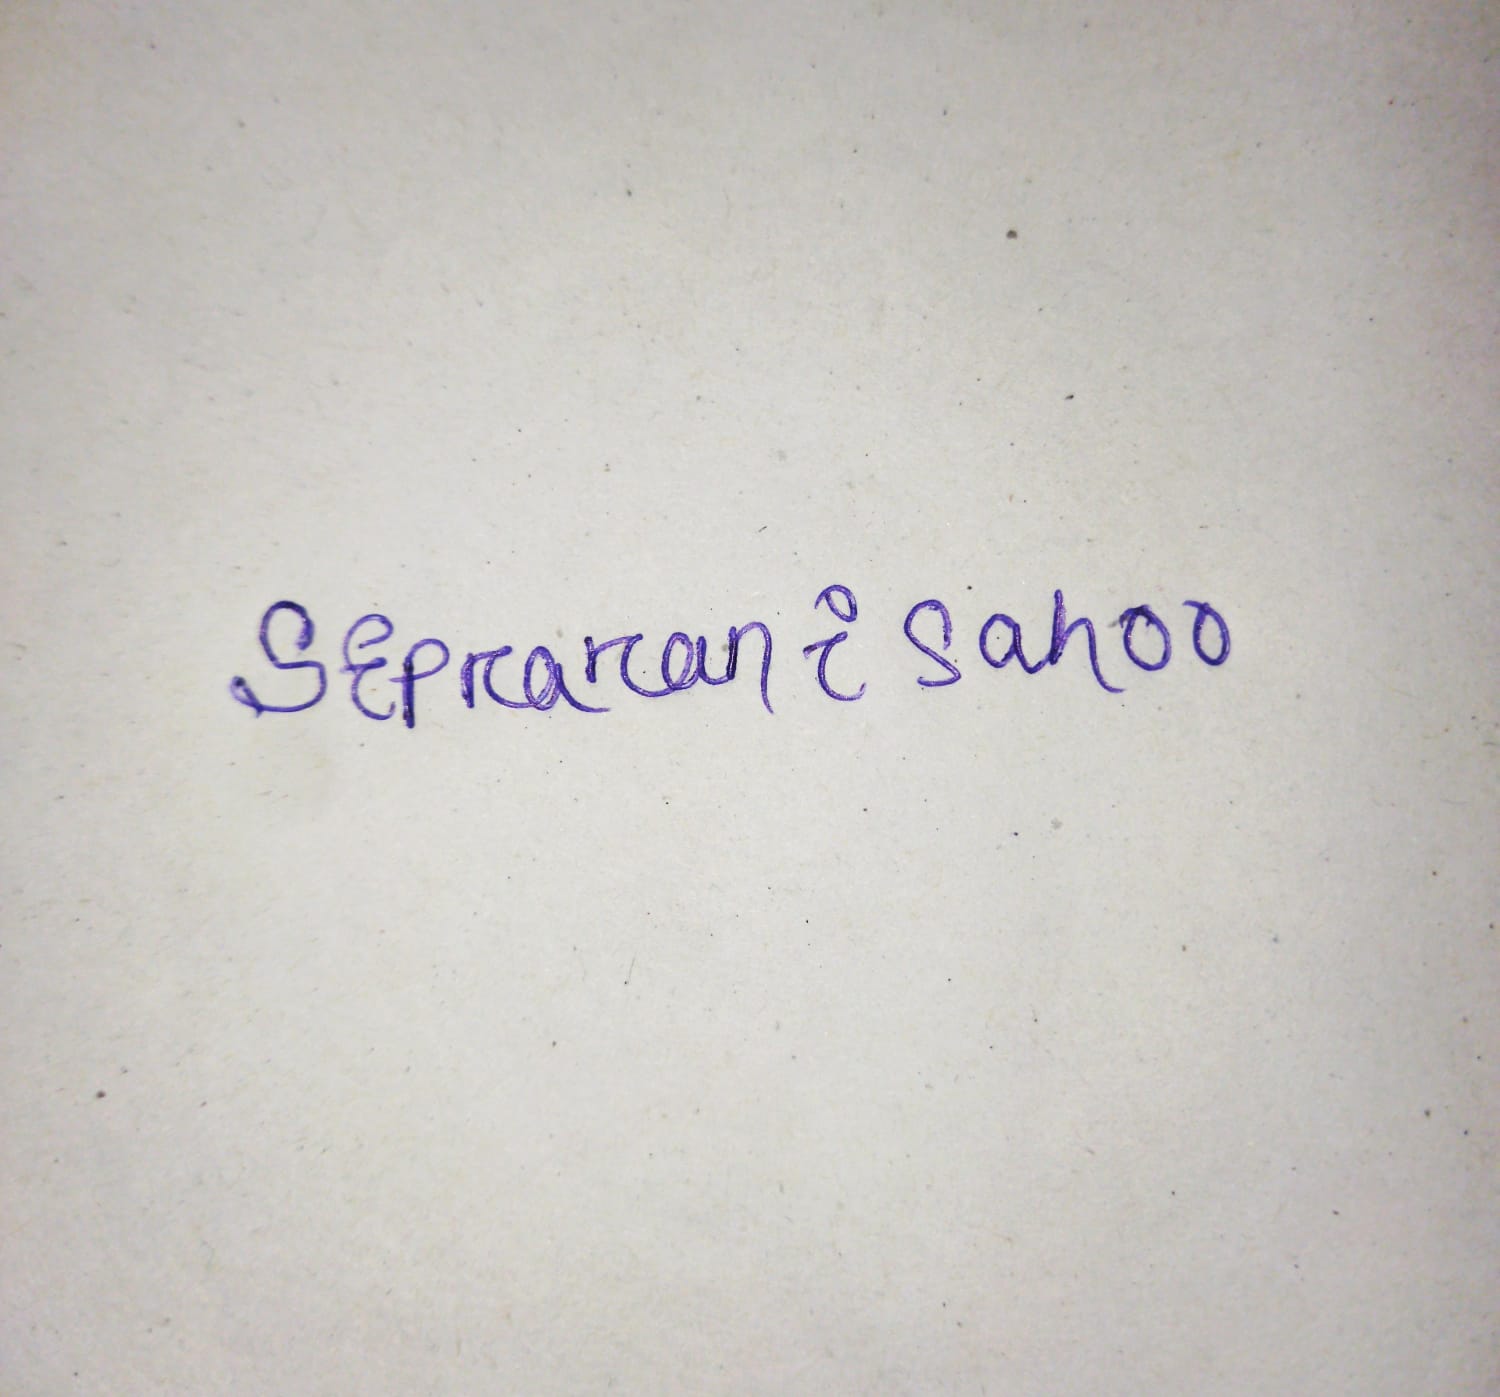 Sipra rani sahoo